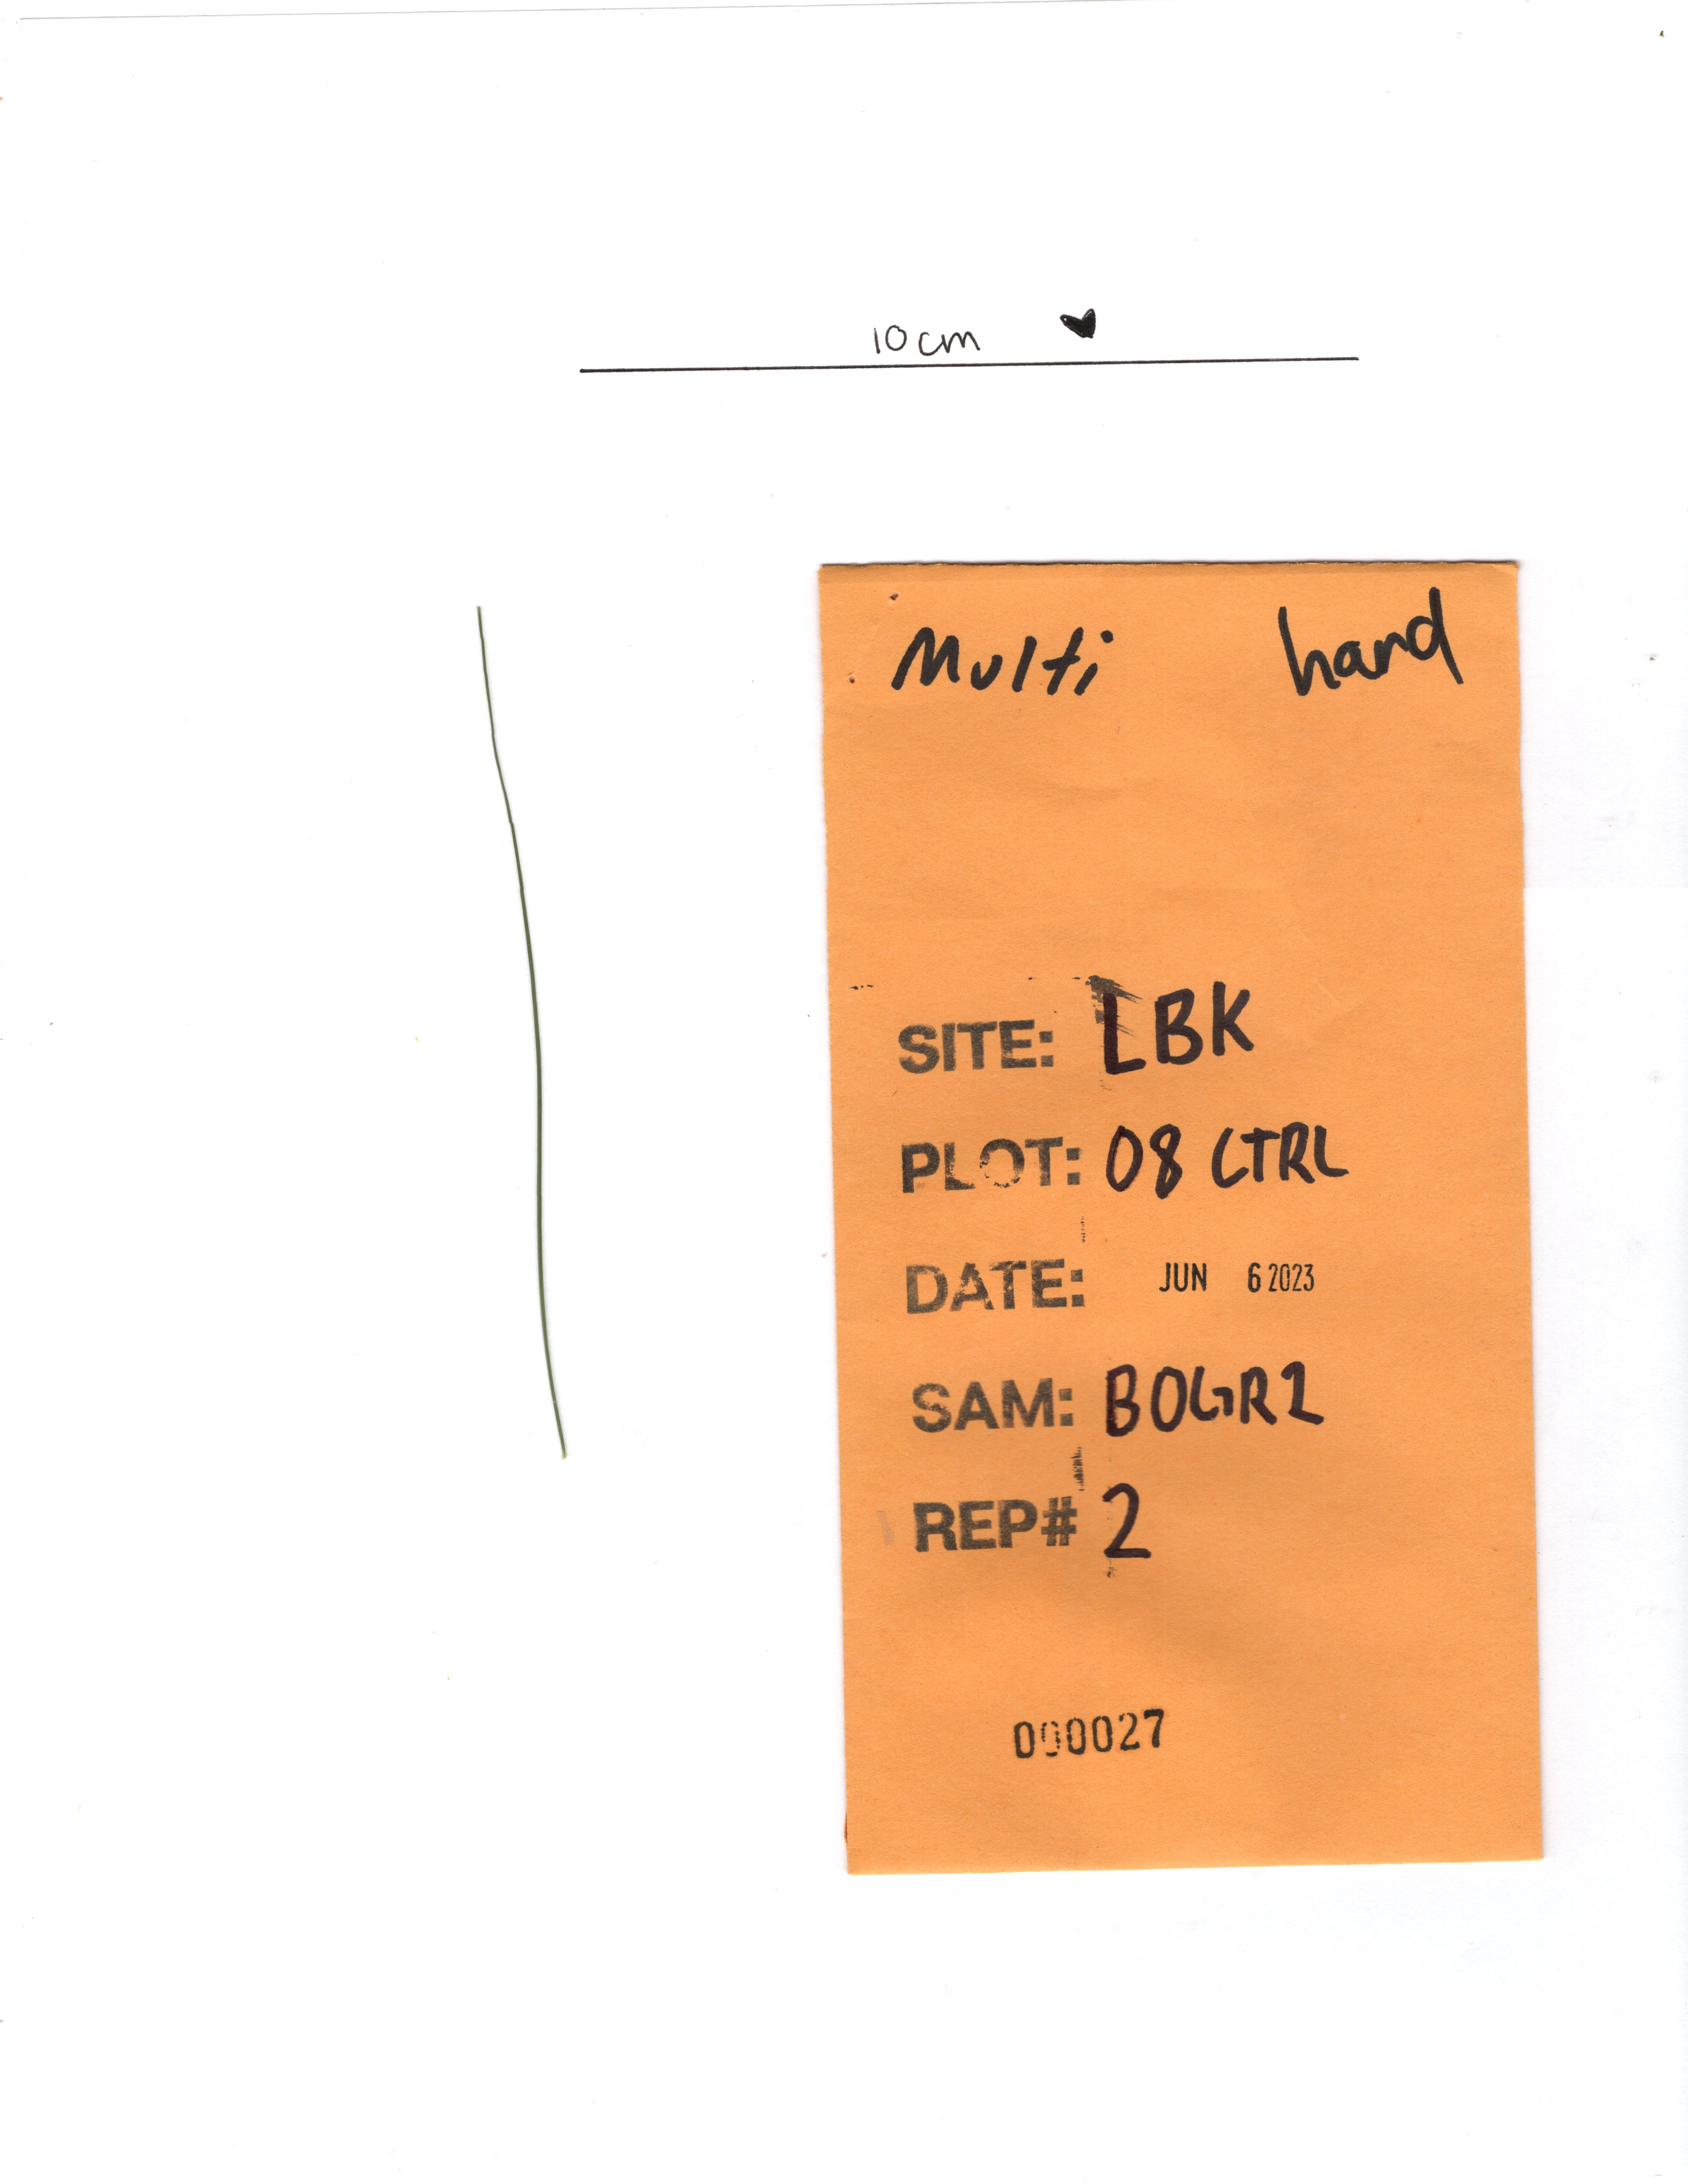 10cm
Multi hard
SITE: LBK
PLOT: 08 CTRL
DATE: JUN 6 2023
SAM: BOGR2
REP# 2
000027